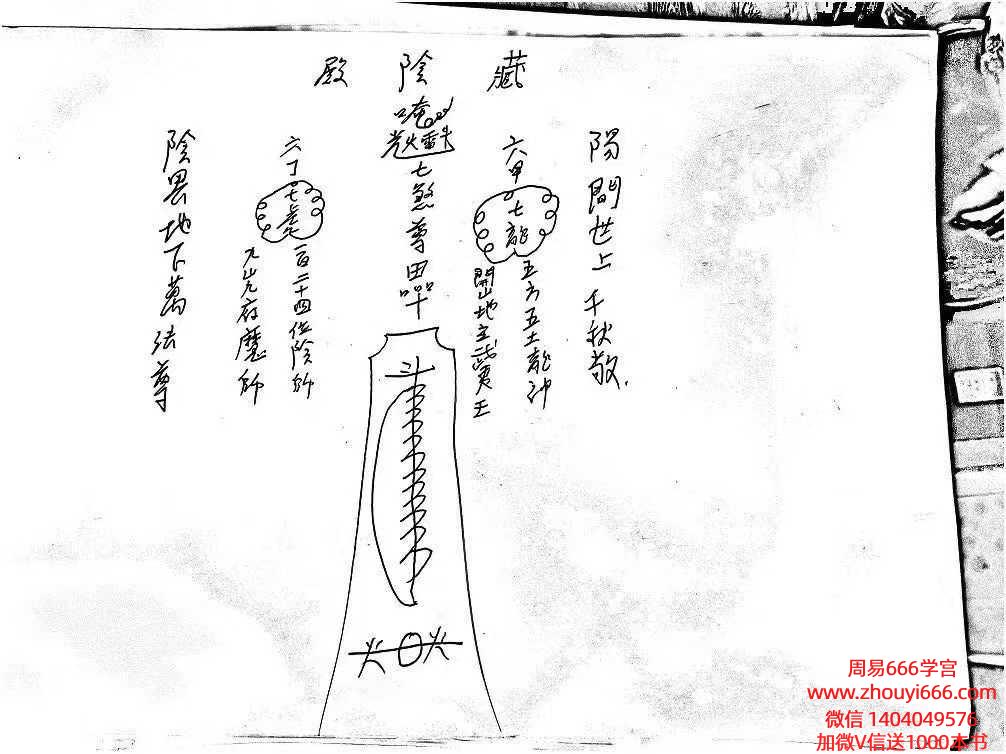 藏陰殿
陽間世上千秋敬
六甲
七龍
五方五土龍神
開山地主武夷王
唵
七煞尊
六丁
一百二十四位陰師
陰界地下萬法尊
斗
火 火
周易666学宫
www.zhouyi666.com
微信 1404049576
加微V信送1000本书